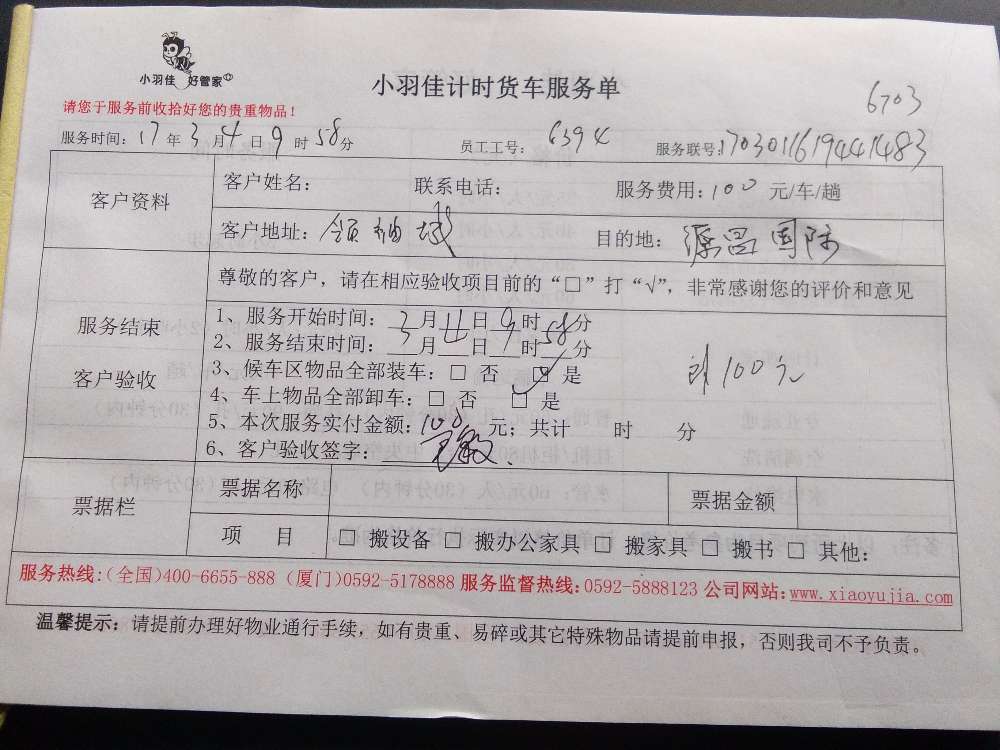 小羽佳 好管家
小羽佳计时货车服务单
6703
请您于服务前收拾好您的贵重物品！
服务时间：17年3月4日9时58分 员工工号：6394 服务联号：17030116194441483
客户资料
客户姓名： 联系电话： 服务费用：100 元/车/趟
客户地址：领袖城 目的地：源昌国际
服务结束
客户验收
尊敬的客户，请在相应验收项目前的“□”打“√”，非常感谢您的评价和意见
1、服务开始时间：3月4日9时58分
2、服务结束时间：___月___日___时___分
3、候车区物品全部装车：□ 否 ☑ 是
4、车上物品全部卸车：□ 否 □ 是
5、本次服务实付金额：100元；共计 时 分
6、客户验收签字：王敏
100元
票据栏
票据名称 票据金额
项 目 □ 搬设备 □ 搬办公家具 □ 搬家具 □ 搬书 □ 其他：
服务热线：(全国)400-6655-888 (厦门)0592-5178888 服务监督热线：0592-5888123 公司网站：www.xiaoyujia.com
温馨提示：请提前办理好物业通行手续，如有贵重、易碎或其它特殊物品请提前申报，否则我司不予负责。